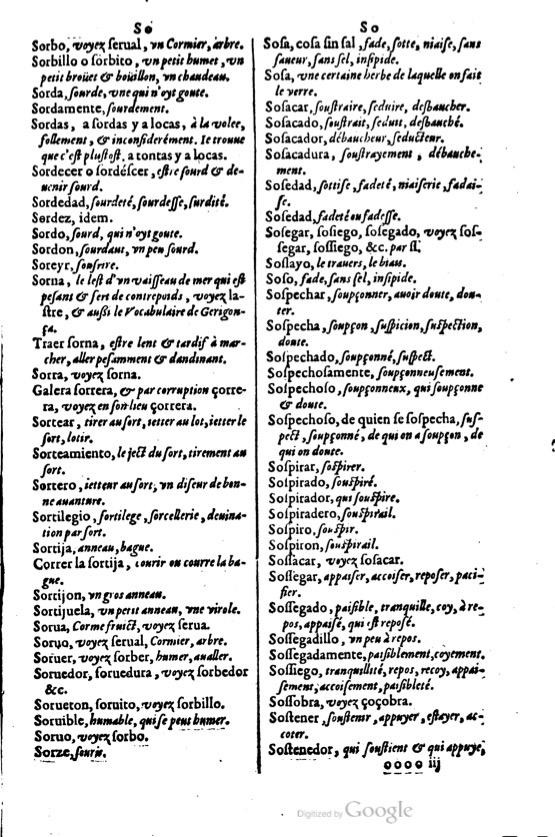 So
Sorbo, voyez serual, vn Cormier, arbre.
Sorbillo o sorbito, vn petit humet, vn
petit broüet & boüillon, vn chaudeau.
Sorda, sourde, vne qui n'oyt goute.
Sordamente, sourdement.
Sordas, a sordas y a locas, à la volee,
follement, & inconsiderément. Ie trouue
que c'est plustost, a tontas y a locas.
Sordecer o sordéscer, estre sourd & de-
uenir sourd.
Sordedad, sourdeté, sourdesse, surdité.
Sordez, idem.
Sordo, sourd, qui n'oyt goute.
Sordon, sourdaut, vn peu sourd.
Soreyr, sousrire.
Sorna, le lest d'vn vaisseau de mer qui est
pesant & sert de contrepoids, voyez la-
stre, & aussi le Vocabulaire de Gerigon-
ça.
Traer sorna, estre lent & tardif à mar-
cher, aller pesamment & dandinant.
Sorra, voyez sorna.
Galera sorrera, & par corruption çorre-
ra, voyez en son lieu çorrera.
Sortear, tirer au sort, ietter au lot, ietter le
sort, lotir.
Sorteamiento, le ject du sort, tirement au
sort.
Sortero, ietteur au sort, vn diseur de bon-
ne auanture.
Sortilegio, sortilege, sorcellerie, deuina-
tion par sort.
Sortija, anneau, bague.
Correr la sortija, courir ou courre la ba-
gue.
Sortijon, vn gros anneau.
Sortijuela, vn petit anneau, vne virole.
Sorua, Corme fruict, voyez serua.
Soruo, voyez serual, Cormier, arbre.
Soruer, voyez sorber, humer, aualler.
Soruedor, soruedura, voyez sorbedor
&c.
Sorueton, soruito, voyez sorbillo.
Soruible, humable, qui se peut humer.
Soruo, voyez sorbo.
Sorze, souris.
So
Sosa, cosa sin sal, fade, sotte, niaise, sans
saueur, sans sel, insipide.
Sosa, vne certaine herbe de laquelle on fait
le verre.
Sosacar, soustraire, seduire, desbaucher.
Sosacado, soustrait, seduit, desbauché.
Sosacador, débaucheur, seducteur.
Sosacadura, soustrayement, débauche-
ment.
Sosedad, sottise, fadeté, niaiserie, fadai-
se.
Sosedad, fadeté ou fadesse.
Sosegar, sosiego, sosegado, voyez sos-
segar, sossiego, &c. par ss.
Soslayo, le trauers, le biais.
Soso, fade, sans sel, insipide.
Sospechar, soupçonner, auoir doute, dou-
ter.
Sospecha, soupçon, suspicion, suspection,
doute.
Sospechado, soupçonné, suspect.
Sospechosamente, soupçonneusement.
Sospechoso, soupçonneux, qui soupçonne
& doute.
Sospechoso, de quien se sospecha, sus-
pect, soupçonné, de qui on a soupçon, de
qui on doute.
Sospirar, sospirer.
Sospirado, souspiré.
Sospirador, qui souspire.
Sospiradero, souspirail.
Sospiro, souspir.
Sospiron, souspirail.
Sossacar, voyez sosacar.
Sossegar, appaiser, accoiser, reposer, paci-
fier.
Sossegado, paisible, tranquille, coy, à re-
pos, appaisé, qui est reposé.
Sossegadillo, vn peu à repos.
Sossegadamente, paisiblement, coyement.
Sossiego, tranquillité, repos, recoy, appai-
sement, accoisement, paisibleté.
Sossobra, voyez çoçobra.
Sostener, soustenir, appuyer, estayer, ac-
coter.
Sostenedor, qui soustient & qui appuye,
oooo iij
Digitized by Google